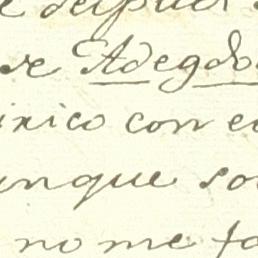 despues
se Adegdo
irico con e
unque so
no me fa